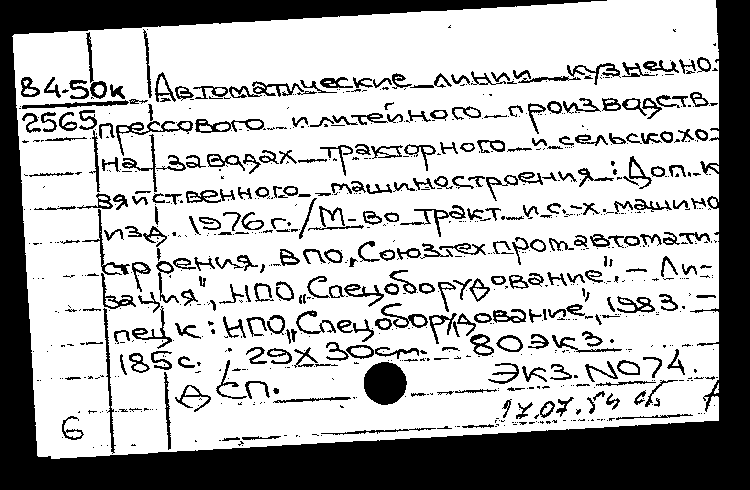 84-50к Автоматические линии кузнечно-
2565 прессового и литейного производств
на заводах тракторного и сельскохо-
зяйственного машиностроения: Доп. к
изд. 1976 г. / М-во тракт. и с.-х. машино
строения, ВПО „Союзтехпромавтомати-
зация", НПО „Спецоборудование". - Ли-
пецк: НПО „Спецоборудование", 1983. -
185 с. ; 29х30 см. - 80 экз.
ДСП. Экз. N074.
17.07.84
6